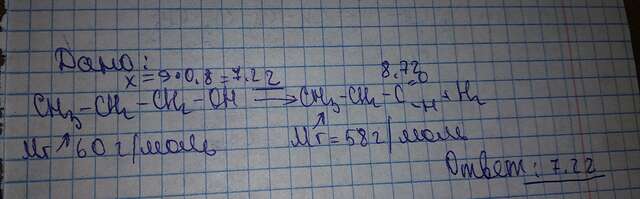 Дано:
x = 9·0,8 = 7,2г
8,7г
CH3-CH2-CH2-OH → CH3-CH2-C=O-H + H2
Mr 60г/моль Mr=58г/моль
Ответ: 7,2г